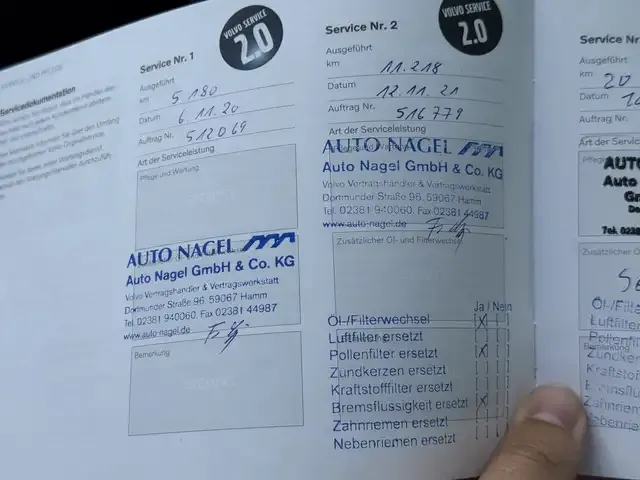 Servicedokumentation
Service Nr. 1
VOLVO SERVICE
2.0
Ausgeführt
km 5 180
Datum 6 11. 20
Auftrag Nr. 512069
Art der Serviceleistung
Pflege und Wartung
AUTO NAGEL
Auto Nagel GmbH & Co. KG
Volvo Vertragshändler & Vertragswerkstatt
Dortmunder Straße 96 59067 Hamm
Tel. 02381 940060, Fax 02381 44987
www.auto-nagel.de
Bemerkung
Service Nr. 2
VOLVO SERVICE
2.0
Ausgeführt
km 11.218
Datum 12.11.21
Auftrag Nr. 516779
Art der Serviceleistung
AUTO NAGEL
Auto Nagel GmbH & Co. KG
Volvo Vertragshändler & Vertragswerkstatt
Dortmunder Straße 96, 59067 Hamm
Tel. 02381 940060, Fax 02381 44987
www.auto-nagel.de
Zusätzlicher Öl- und Filterwechsel
Ja / Nein
Öl-/Filterwechsel [X] [ ]
Luftfilter ersetzt [ ] [ ]
Pollenfilter ersetzt [X] [ ]
Zundkerzen ersetzt [ ] [ ]
Kraftstofffilter ersetzt [ ] [ ]
Bremsflussigkeit ersetzt [X] [ ]
Zahnriemen ersetzt [ ] [ ]
Nebenriemen ersetzt [ ] [ ]
Service Nr
Ausgeführt
km 20
Datum
Auftrag Nr.
Art der Service
AUTO
Auto
Tel. 0238
Zusätzlicher Öl
Öl-/Filter
Luftfilter
Pollenfilt
Bemerkung
Zundker
Kraftstof
Zahnriem